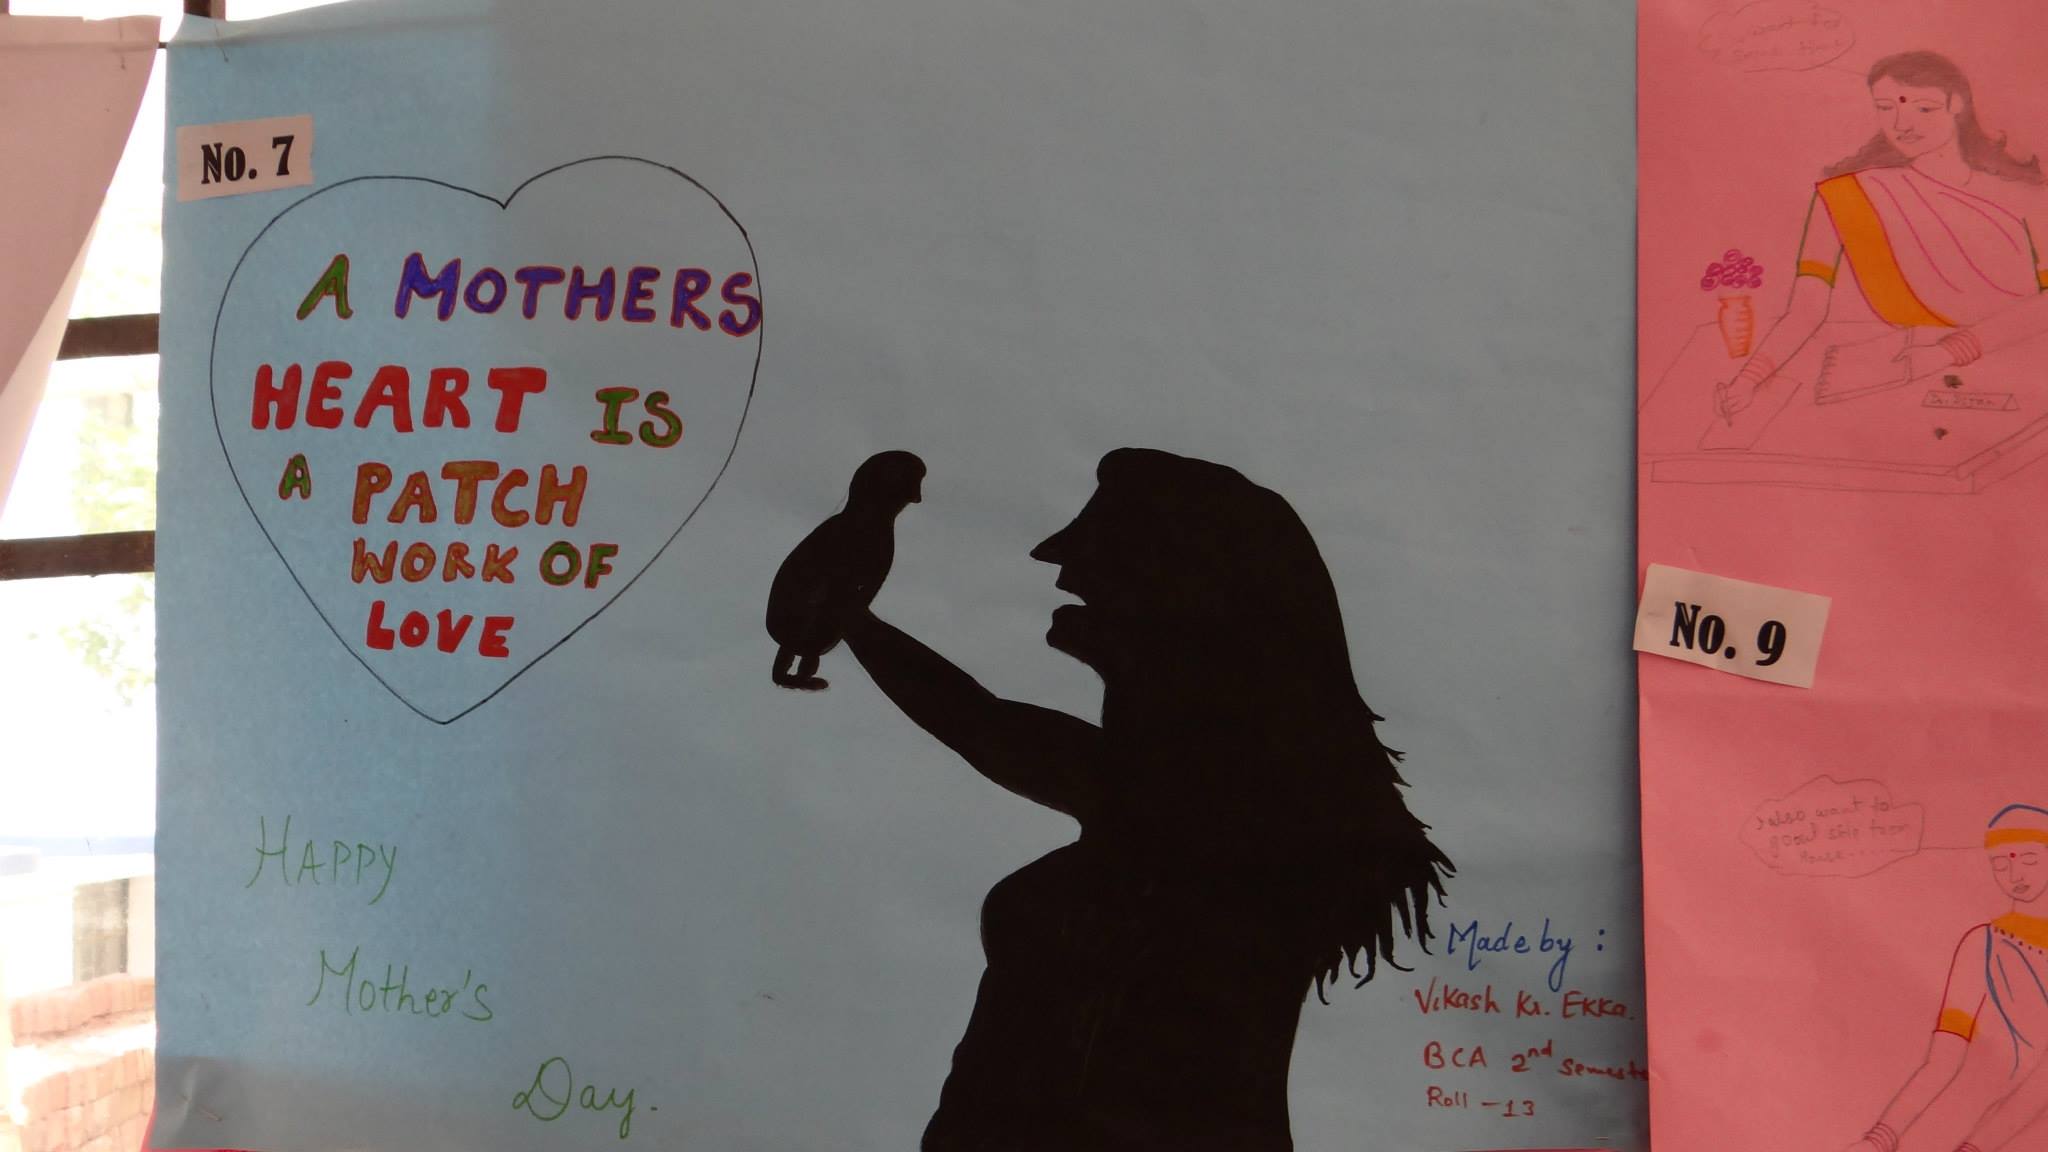 No. 7
A MOTHERS
HEART IS
A PATCH
WORK OF
LOVE
HAPPY
Mother's
Day.
Made by :
Vikash Kr. Ekka.
BCA 2nd Semest
Roll - 13
want
No. 9
also want to
good
House....